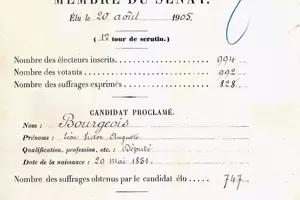 MEMBRE DU SÉNAT.
Élu le 20 août 1905.
(1er tour de scrutin.)
Nombre des électeurs inscrits. 994
Nombre des votants. 992
Nombre des suffrages exprimés. 828
CANDIDAT PROCLAMÉ.
Nom : Bourgeois
Prénoms : Léon Victor Auguste
Qualification, profession, etc. : Député
Date de la naissance : 20 mai 1851
Nombre des suffrages obtenus par le candidat élu 747